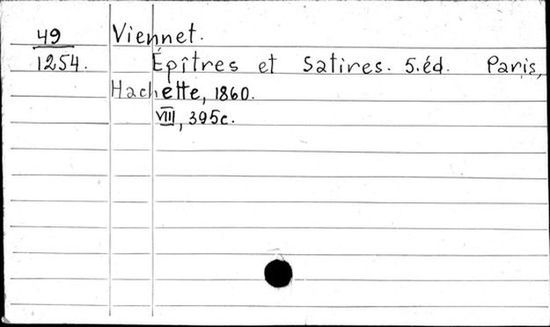 49 Viennet.
1254. Épîtres et Satires. 5.éd. Paris,
Hachette, 1860.
VIII, 395c.